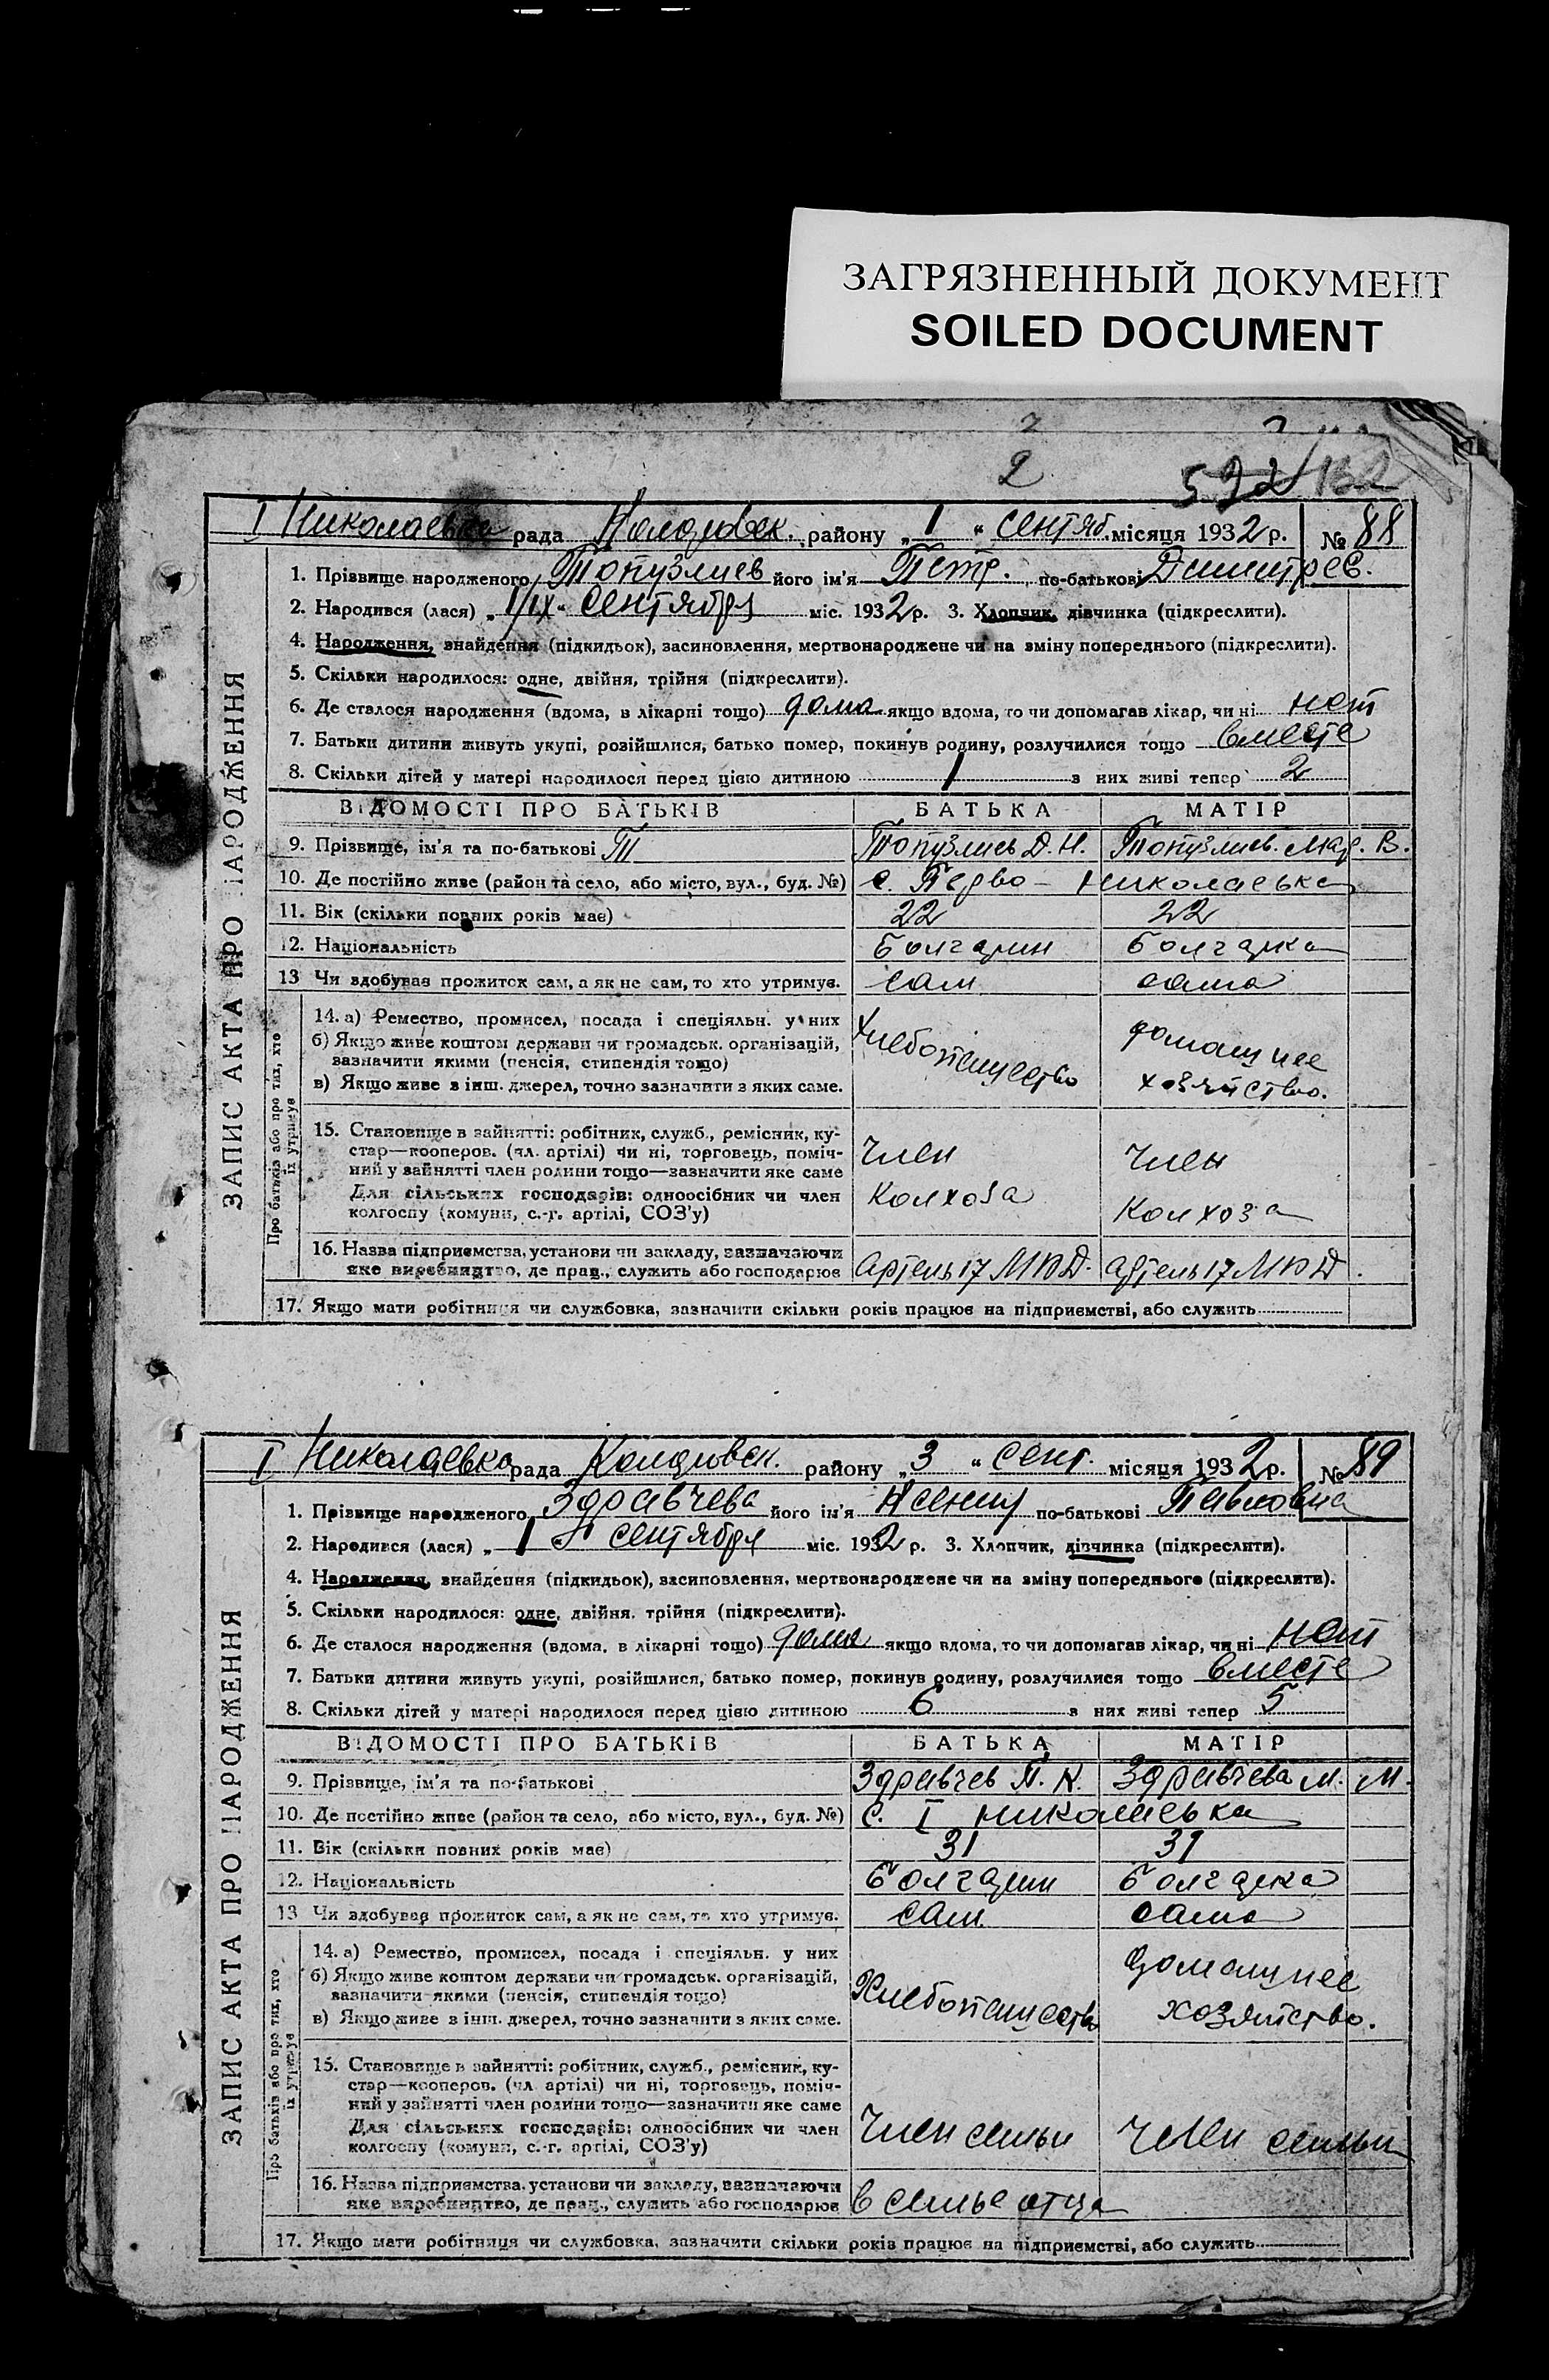 ЗАГРЯЗНЕННЫЙ ДОКУМЕНТ
SOILED DOCUMENT
2
ЗАПИС АКТА ПРО НАРОДЖЕННЯ
I Николаевка рада району „1“ сентяб. місяця 1932 р. № 88
1. Прізвище народженого Топузлиев його ім'я Петр. по-батькові Димитрев.
2. Народився (лася) „1/IX“ сентября міс. 1932 р. 3. Хлопчик, дівчинка (підкреслити).
4. Народження, знайдення (підкидьок), засиновлення, мертвонароджене чи на зміну попереднього (підкреслити).
5. Скільки народилося: одне, двійня, трійня (підкреслити).
6. Де сталося народження (вдома, в лікарні тощо) дома якщо вдома, то чи допомагав лікар, чи ні нет
7. Батьки дитини живуть укупі, розійшлися, батько помер, покинув родину, розлучилися тощо вместе
8. Скільки дітей у матері народилося перед цією дитиною 1 з них живі тепер 2
ВІДОМОСТІ ПРО БАТЬКІВ БАТЬКА МАТІР
9. Прізвище, ім'я та по-батькові Т Топузлиев Д. Н. Топузлиев. Мар. В.
10. Де постійно живе (район та село, або місто, вул., буд. №) с. Перво - Николаевка
11. Вік (скільки повних років має) 22 22
12. Національність болгарин болгарка
13 Чи здобував прожиток сам, а як не сам, то хто утримує. сам сама
Про батьків або про тих, хто їх утримує
14. а) Ремество, промисел, посада і спеціяльн. у них
б) Якщо живе коштом держави чи громадськ. організацій,
зазначити якими (пенсія, стипендія тощо)
в) Якщо живе з інш. джерел, точно зазначити з яких саме.
хлебопашество домашнее
хозяйство.
15. Становище в зайнятті: робітник, служб., ремісник, ку-
стар—кооперов. (чл. артілі) чи ні, торговець, поміч-
ний у зайнятті член родини тощо—зазначити яке саме
Для сільських господарів: одноосібник чи член
колгоспу (комуни, с.-г. артілі, СОЗ'у)
член член
колхоза колхоза
16. Назва підприємства, установи чи закладу, зазначаючи
яке виробництво, де прац., служить або господарює артель 17 МЮД. артель 17 МЮД.
17. Якщо мати робітниця чи службовка, зазначити скільки років працює на підприємстві, або служить
ЗАПИС АКТА ПРО НАРОДЖЕННЯ
I Николаевка рада району „3“ сент. місяця 1932 р. № 89
1. Прізвище народженого Здравчева його ім'я по-батькові Павловна
2. Народився (лася) „1“ сентября міс. 1932 р. 3. Хлопчик, дівчинка (підкреслити).
4. Народження, знайдення (підкидьок), засиновлення, мертвонароджене чи на зміну попереднього (підкреслити).
5. Скільки народилося: одне, двійня, трійня (підкреслити).
6. Де сталося народження (вдома, в лікарні тощо) дома якщо вдома, то чи допомагав лікар, чи ні нет
7. Батьки дитини живуть укупі, розійшлися, батько помер, покинув родину, розлучилися тощо вместе
8. Скільки дітей у матері народилося перед цією дитиною 6 з них живі тепер 5
ВІДОМОСТІ ПРО БАТЬКІВ БАТЬКА МАТІР
9. Прізвище, ім'я та по-батькові Здравчев П. К. Здравчева М. М.
10. Де постійно живе (район та село, або місто, вул., буд. №) с. I Николаевка
11. Вік (скільки повних років має) 31 31
12. Національність болгарин болгарка
13 Чи здобував прожиток сам, а як не сам, то хто утримує. сам. сама
Про батьків або про тих, хто їх утримує
14. а) Ремество, промисел, посада і спеціяльн. у них
б) Якщо живе коштом держави чи громадськ. організацій,
зазначити якими (пенсія, стипендія тощо)
в) Якщо живе з інш. джерел, точно зазначити з яких саме.
Хлебопашество домашнее
хозяйство.
15. Становище в зайнятті: робітник, служб., ремісник, ку-
стар—кооперов. (чл. артілі) чи ні, торговець, поміч-
ний у зайнятті член родини тощо—зазначити яке саме
Для сільських господарів: одноосібник чи член
колгоспу (комуни, с.-г. артілі, СОЗ'у)
член семьи член семьи
16. Назва підприємства, установи чи закладу, зазначаючи
яке виробництво, де прац., служить або господарює в семье отца
17. Якщо мати робітниця чи службовка, зазначити скільки років працює на підприємстві, або служить